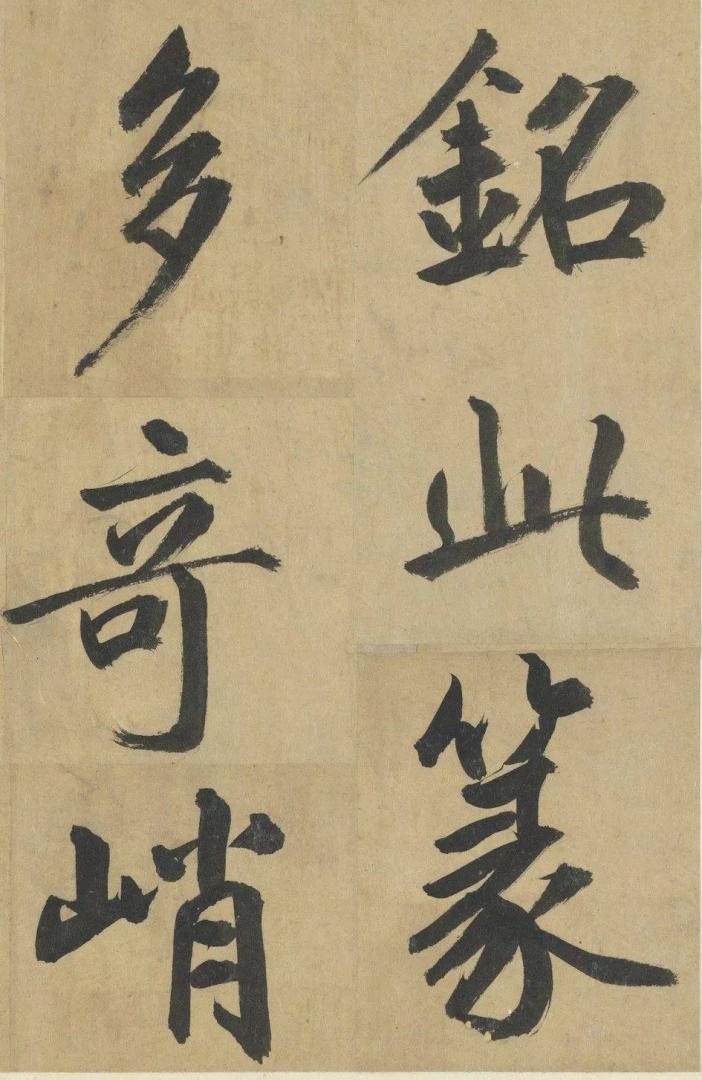 銘此篆
多奇峭